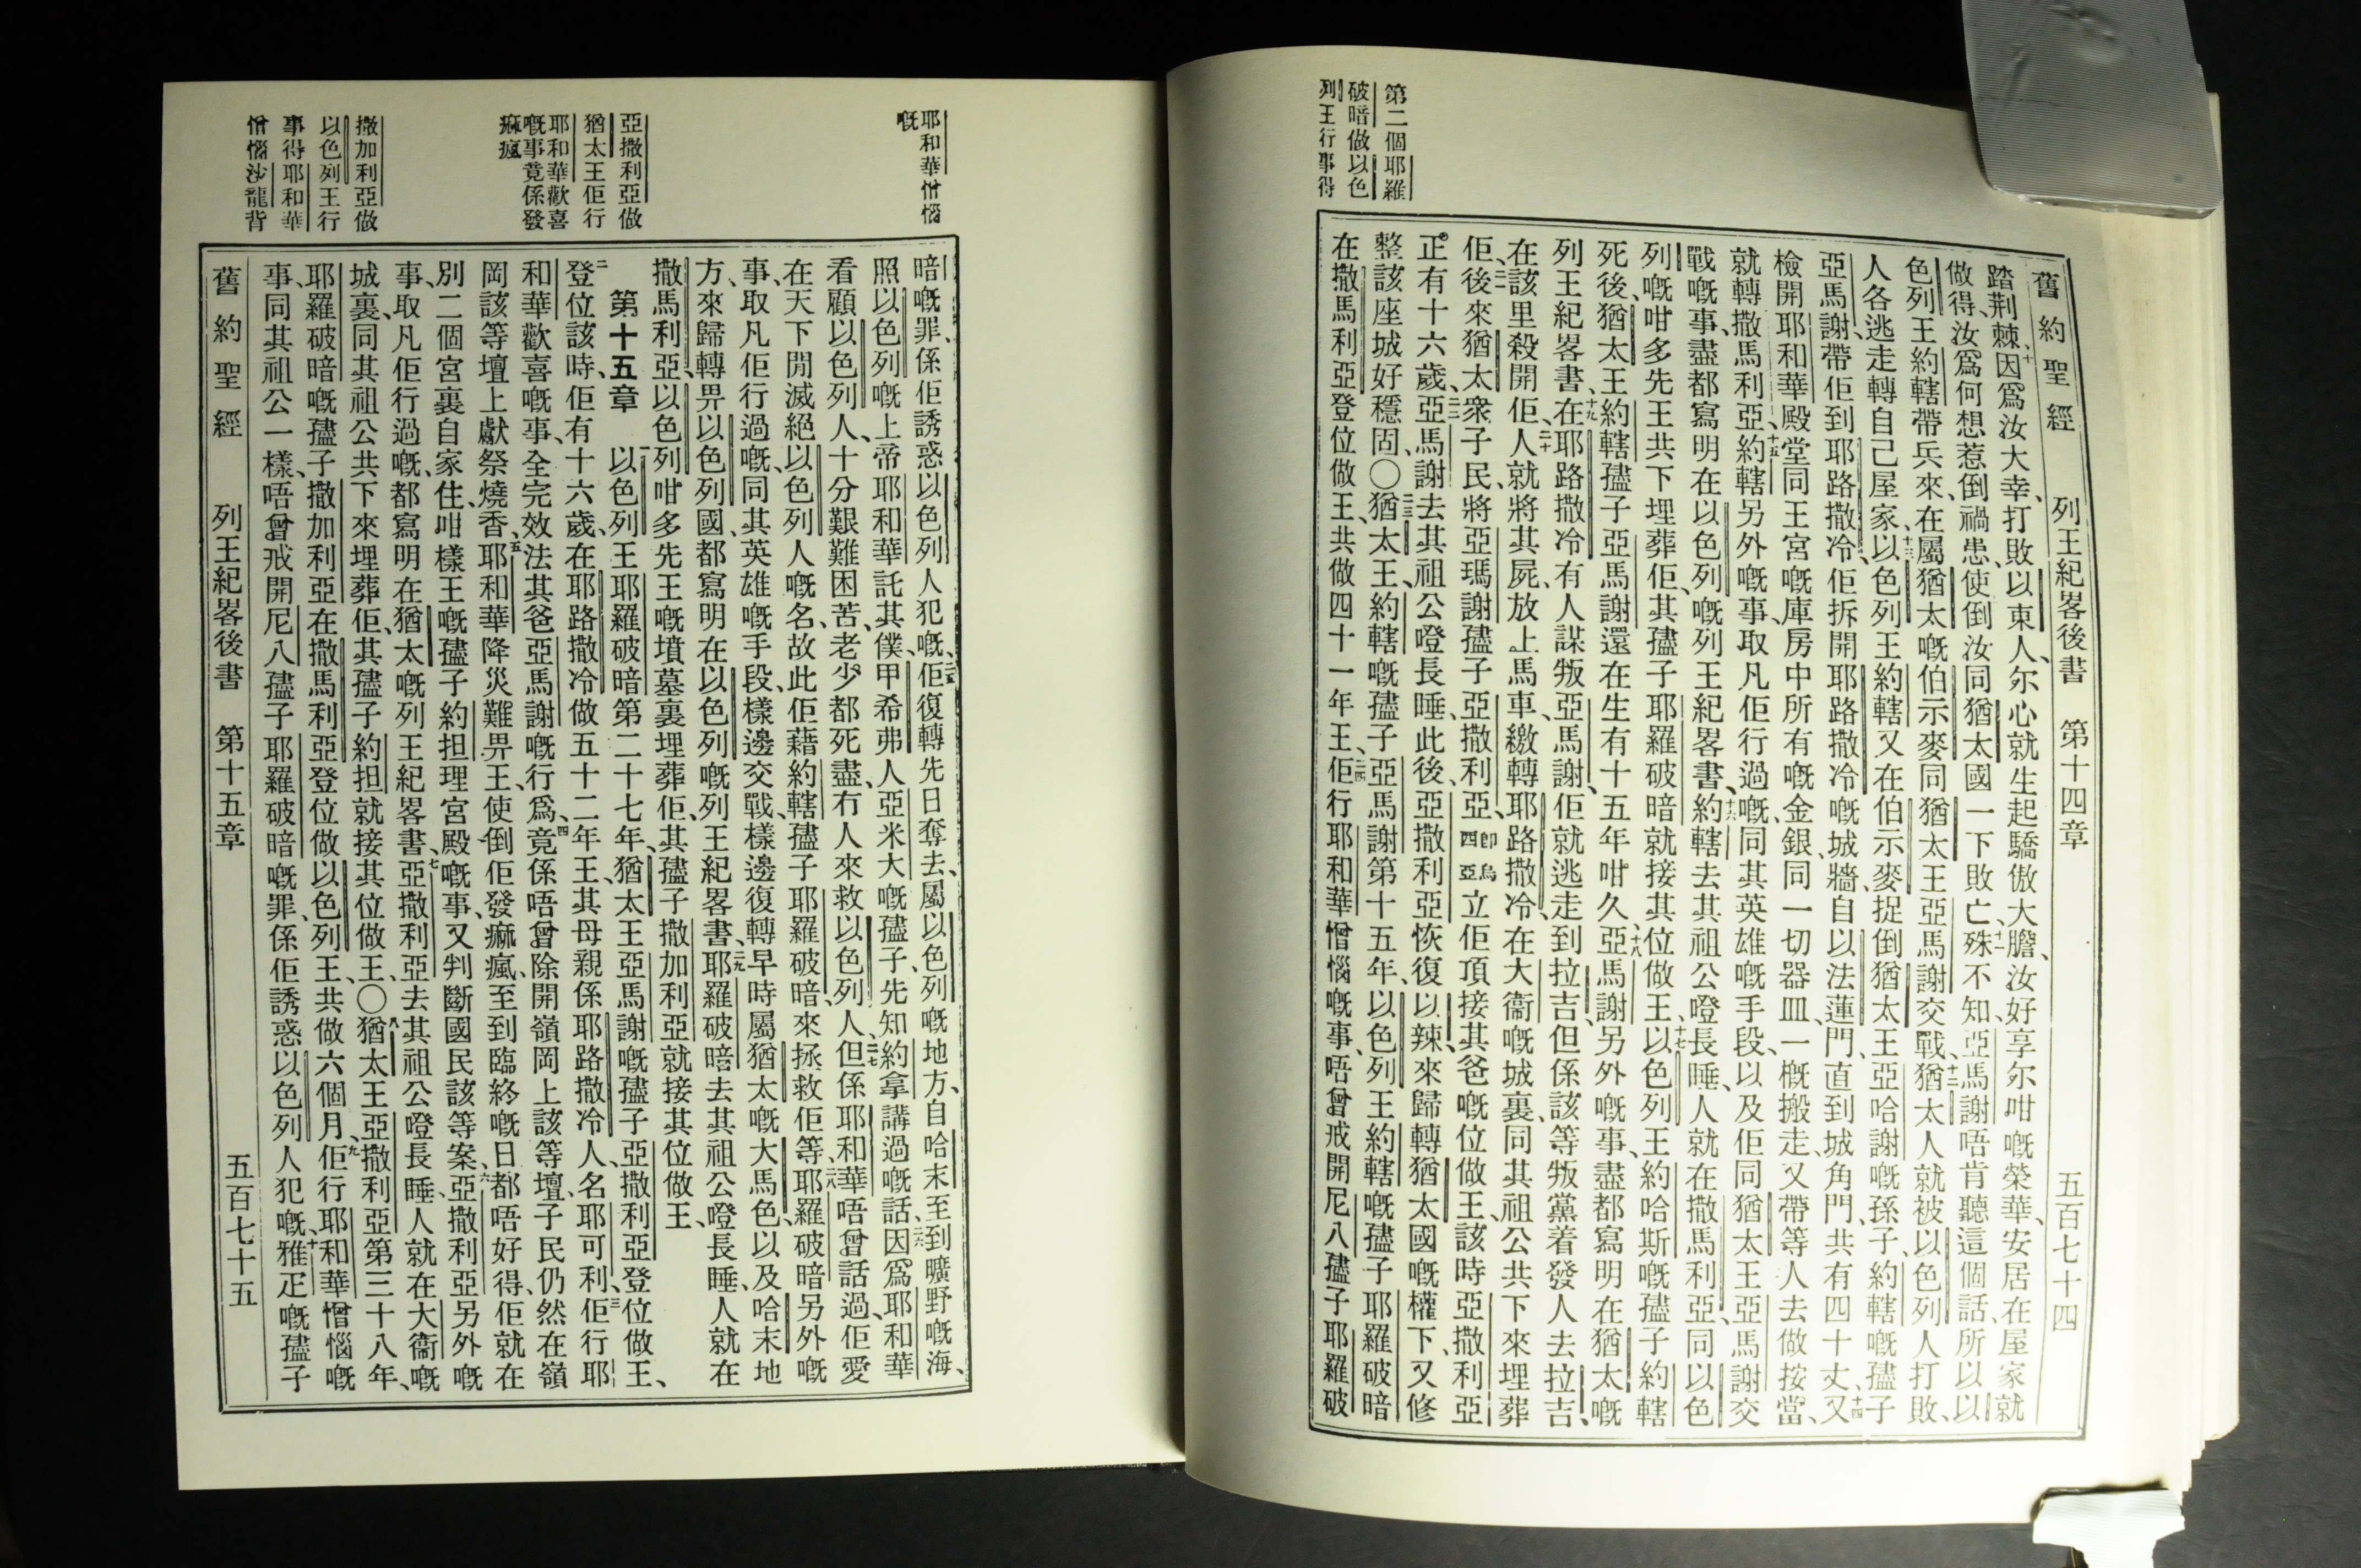 第二個耶羅
破暗做以色
列王行事得
舊約聖經　列王紀畧後書　第十四章　五百七十四
踏荆棘、十因爲汝大幸、打敗以東人、尔心就生起驕傲大膽、汝好享尔咁嘅榮華、安居在屋家就
做得、汝爲何想惹倒禍患、使倒汝同猶太國一下敗亡、十一殊不知、亞馬謝唔肯聽這個話、所以以
色列王約轄帶兵來、在屬猶太嘅伯示麥同猶太王亞馬謝交戰、十二猶太人就被以色列人打敗、
人各逃走轉自己屋家、十三以色列王約轄又在伯示麥捉倒猶太王亞哈謝嘅孫子、約轄嘅孻子
亞馬謝、帶佢到耶路撒冷、佢拆開耶路撒冷嘅城牆、自以法蓮門、直到城角門、共有四十丈、十四又
檢開耶和華殿堂同王宮嘅庫房中所有嘅金銀、同一切器皿、一概搬走、又帶等人去做按當、
就轉撒馬利亞、十五約轄另外嘅事、取凡佢行過嘅、同其英雄嘅手段、以及佢同猶太王亞馬謝交
戰嘅事、盡都寫明在以色列嘅列王紀畧書、十六約轄去其祖公瞪長睡、人就在撒馬利亞、同以色
列嘅咁多先王共下埋葬佢、其孻子耶羅破暗就接其位做王、十七以色列王約哈斯嘅孻子約轄
死後、猶太王約轄孻子亞馬謝還在生有十五年咁久、十八亞馬謝另外嘅事、盡都寫明在猶太嘅
列王紀畧書、十九在耶路撒冷有人謀叛亞馬謝、佢就逃走到拉吉、但係該等叛黨着發人去拉吉、
在該里殺開佢、二十人就將其屍、放上馬車、繳轉耶路撒冷、在大衞嘅城裏、同其祖公共下來埋葬
佢、二一後來猶太衆子民、將亞瑪謝孻子亞撒利亞、即烏西亞立佢頂接其爸嘅位做王、該時亞撒利亞
正有十六歲、二二亞馬謝去其祖公瞪長睡、此後、亞撒利亞恢復以辣、來歸轉猶太國嘅權下、又修
整該座城好穩固〇二三猶太王、約轄嘅孻子亞馬謝第十五年、以色列王約轄嘅孻子耶羅破暗
在撒馬利亞登位做王、共做四十一年王、二四佢行耶和華憎惱嘅事、唔曾戒開尼八孻子耶羅破
耶和華憎惱
嘅
亞撒利亞做
猶太王佢行
耶和華歡喜
嘅事竟係發
痲瘋
撒加利亞做
以色列王行
事得耶和華
憎惱沙龍背
暗嘅罪、係佢誘惑以色列人犯嘅、二五佢復轉先日奪去、屬以色列嘅地方、自哈末至到曠野嘅海、
照以色列嘅上帝耶和華託其僕、甲希弗人、亞米大嘅孻子、先知約拿講過嘅話、二六因爲耶和華
看顧以色列人、十分艱難困苦、老少都死盡、冇人來救以色列人、二七但係耶和華唔曾話過、佢愛
在天下閒滅絕以色列人嘅名、故此佢藉約轄孻子耶羅破暗、來拯救佢等、二八耶羅破暗另外嘅
事、取凡佢行過嘅、同其英雄嘅手段、樣邊交戰、樣邊復轉早時屬猶太嘅大馬色、以及哈末地
方、來歸轉畀以色列國、都寫明在以色列嘅列王紀畧書、二九耶羅破暗去其祖公瞪長睡、人就在
撒馬利亞、以色列咁多先王嘅墳墓裏埋葬佢、其孻子撒加利亞就接其位做王、
第十五章　一以色列王耶羅破暗第二十七年、猶太王亞馬謝嘅孻子亞撒利亞登位做王、
二登位該時、佢有十六歲、在耶路撒冷做五十二年王、其母親係耶路撒冷人、名耶可利、三佢行耶
和華歡喜嘅事、全完效法其爸亞馬謝嘅行爲、四竟係唔曾除開嶺岡上該等壇、子民仍然在嶺
岡該等壇上獻祭燒香、五耶和華降災難畀王、使倒佢發痲瘋、至到臨終嘅日都唔好得、佢就在
別二個宮裏自家住、咁樣王嘅孻子約担理宮殿嘅事、又判斷國民該等案、六亞撒利亞另外嘅
事、取凡佢行過嘅、都寫明在猶太嘅列王紀畧書、七亞撒利亞去其祖公瞪長睡、人就在大衞嘅
城裏、同其祖公共下來埋葬佢、其孻子約担就接其位做王、〇八猶太王亞撒利亞第三十八年、
耶羅破暗嘅孻子撒加利亞在撒馬利亞登位做以色列王、共做六個月、九佢行耶和華憎惱嘅
事、同其祖公一樣、唔曾戒開尼八孻子耶羅破暗嘅罪、係佢誘惑以色列人犯嘅、十雅疋嘅孻子
舊約聖經　列王紀畧後書　第十五章　五百七十五